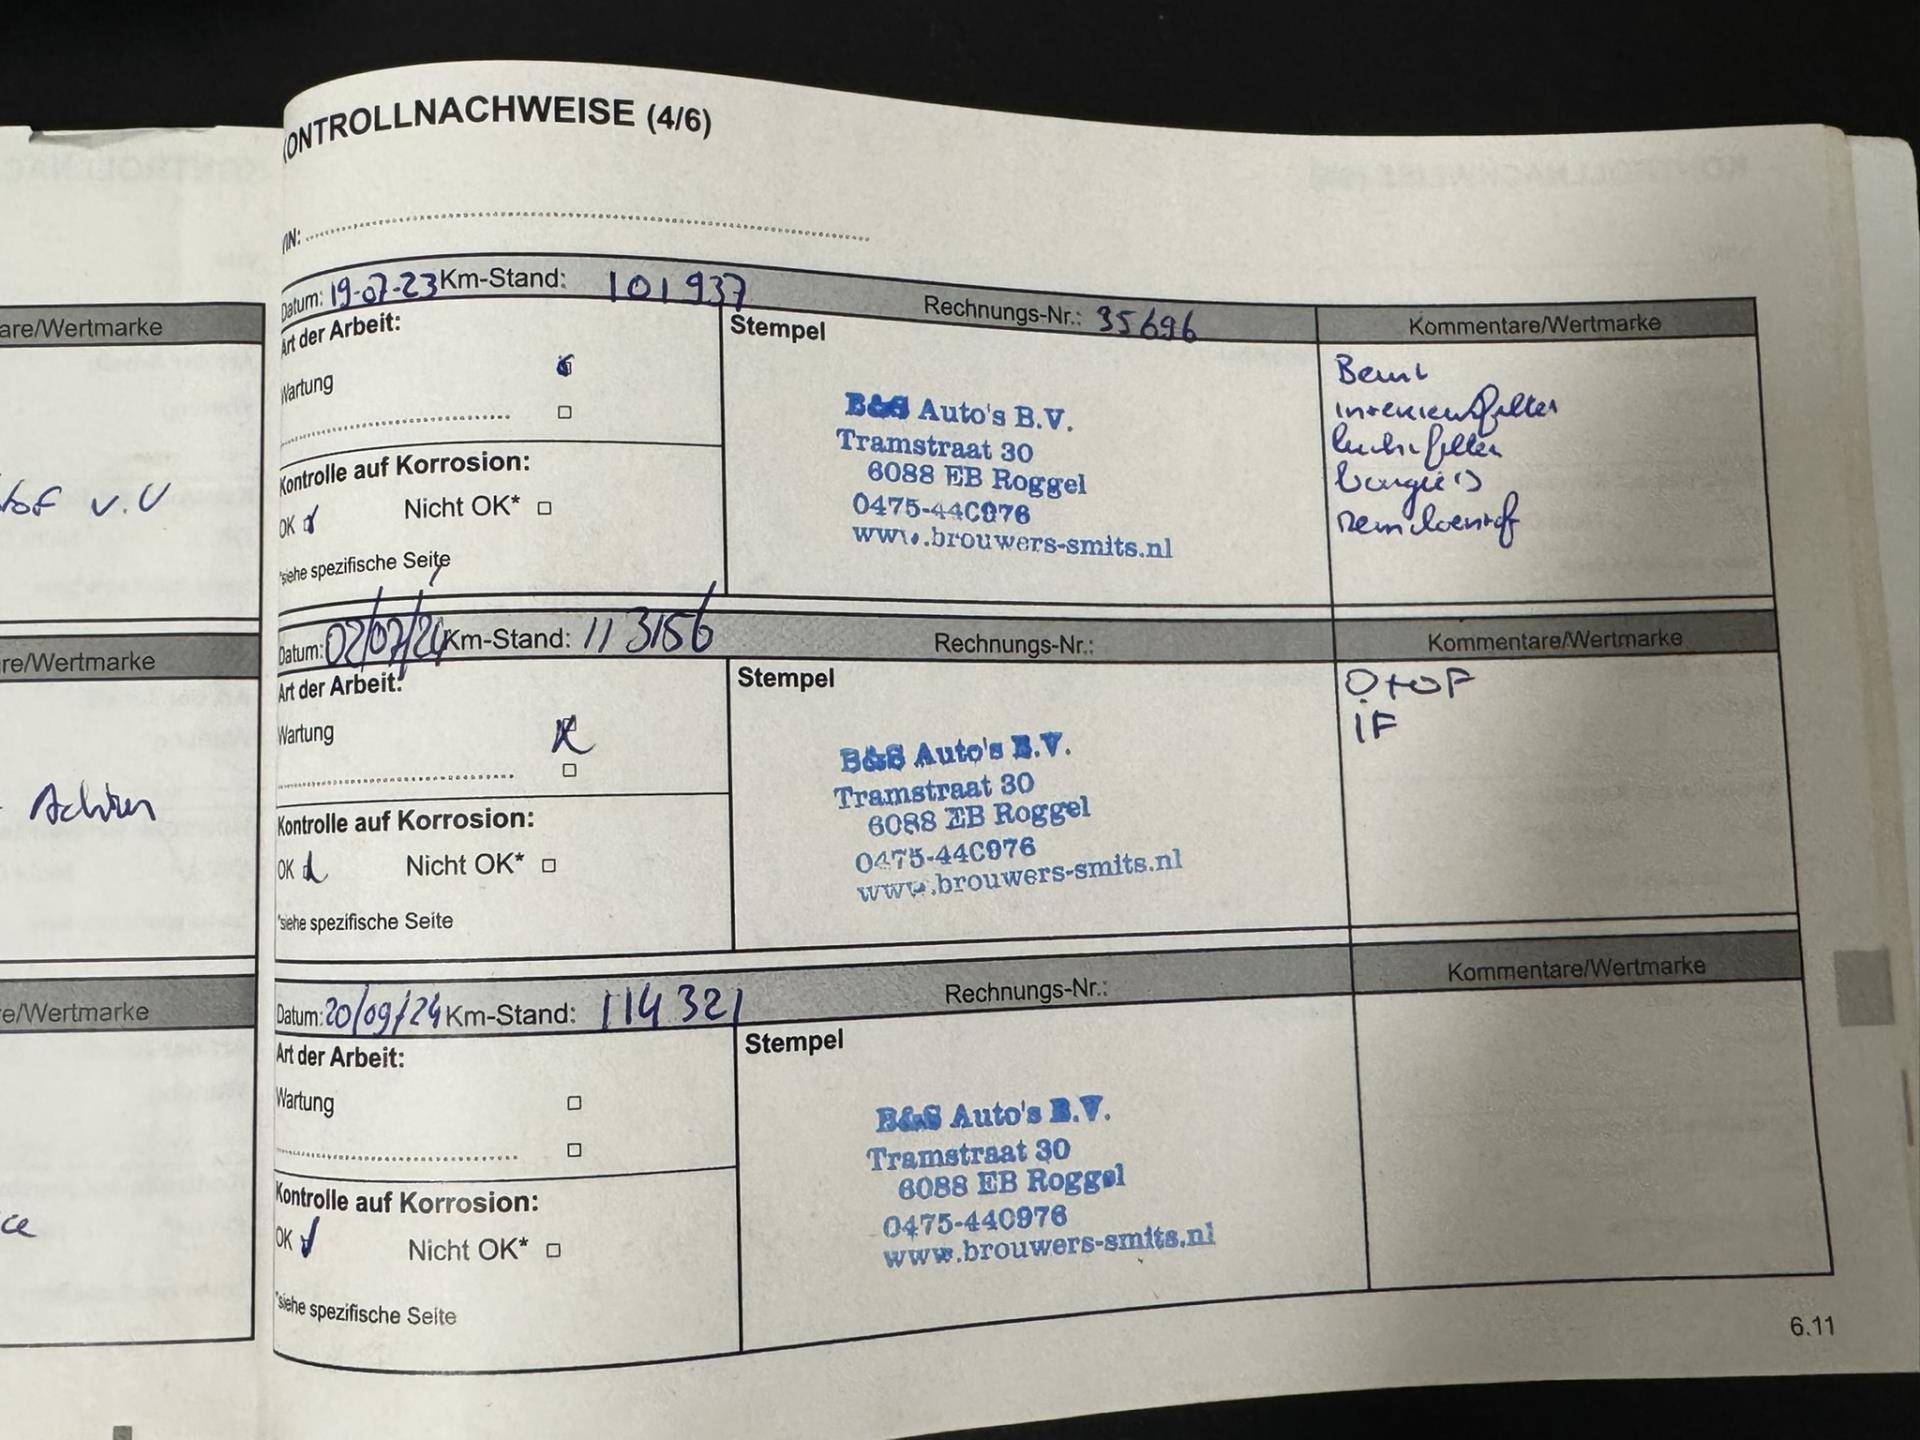 ONTROLLNACHWEISE (4/6)
IN:
Datum: 19-07-23 Km-Stand: 101937 Rechnungs-Nr.: 35696 Kommentare/Wertmarke
Art der Arbeit:
Wartung
Kontrolle auf Korrosion:
OK Nicht OK*
*siehe spezifische Seite
Stempel
B&S Auto's B.V.
Tramstraat 30
6088 EB Roggel
0475-440976
www.brouwers-smits.nl
interieurfilter
luchtfilter
bougie's
remvloeistof
Datum: 02/07/24 Km-Stand: 113156 Rechnungs-Nr.: Kommentare/Wertmarke
Art der Arbeit:
Wartung
Kontrolle auf Korrosion:
OK Nicht OK*
*siehe spezifische Seite
Stempel
B&S Auto's B.V.
Tramstraat 30
6088 EB Roggel
0475-440976
www.brouwers-smits.nl
O+OF
IF
Datum: 20/09/24 Km-Stand: 114321 Rechnungs-Nr.: Kommentare/Wertmarke
Art der Arbeit:
Wartung
Kontrolle auf Korrosion:
OK Nicht OK*
*siehe spezifische Seite
Stempel
B&S Auto's B.V.
Tramstraat 30
6088 EB Roggel
0475-440976
www.brouwers-smits.nl
6.11
are/Wertmarke
v.v
re/Wertmarke
e/Wertmarke
ce